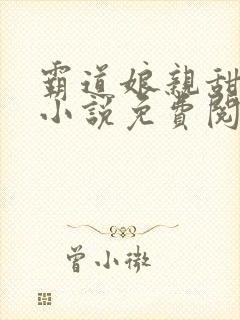 霸道娘親甜
小說免費閱
曾小微